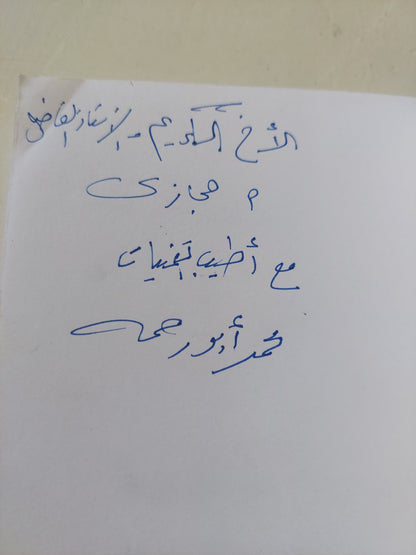 الأخ الكريم والأستاذ الفاضل
م حجازى
مع أطيب التمنيات
محمد أبو رحمه